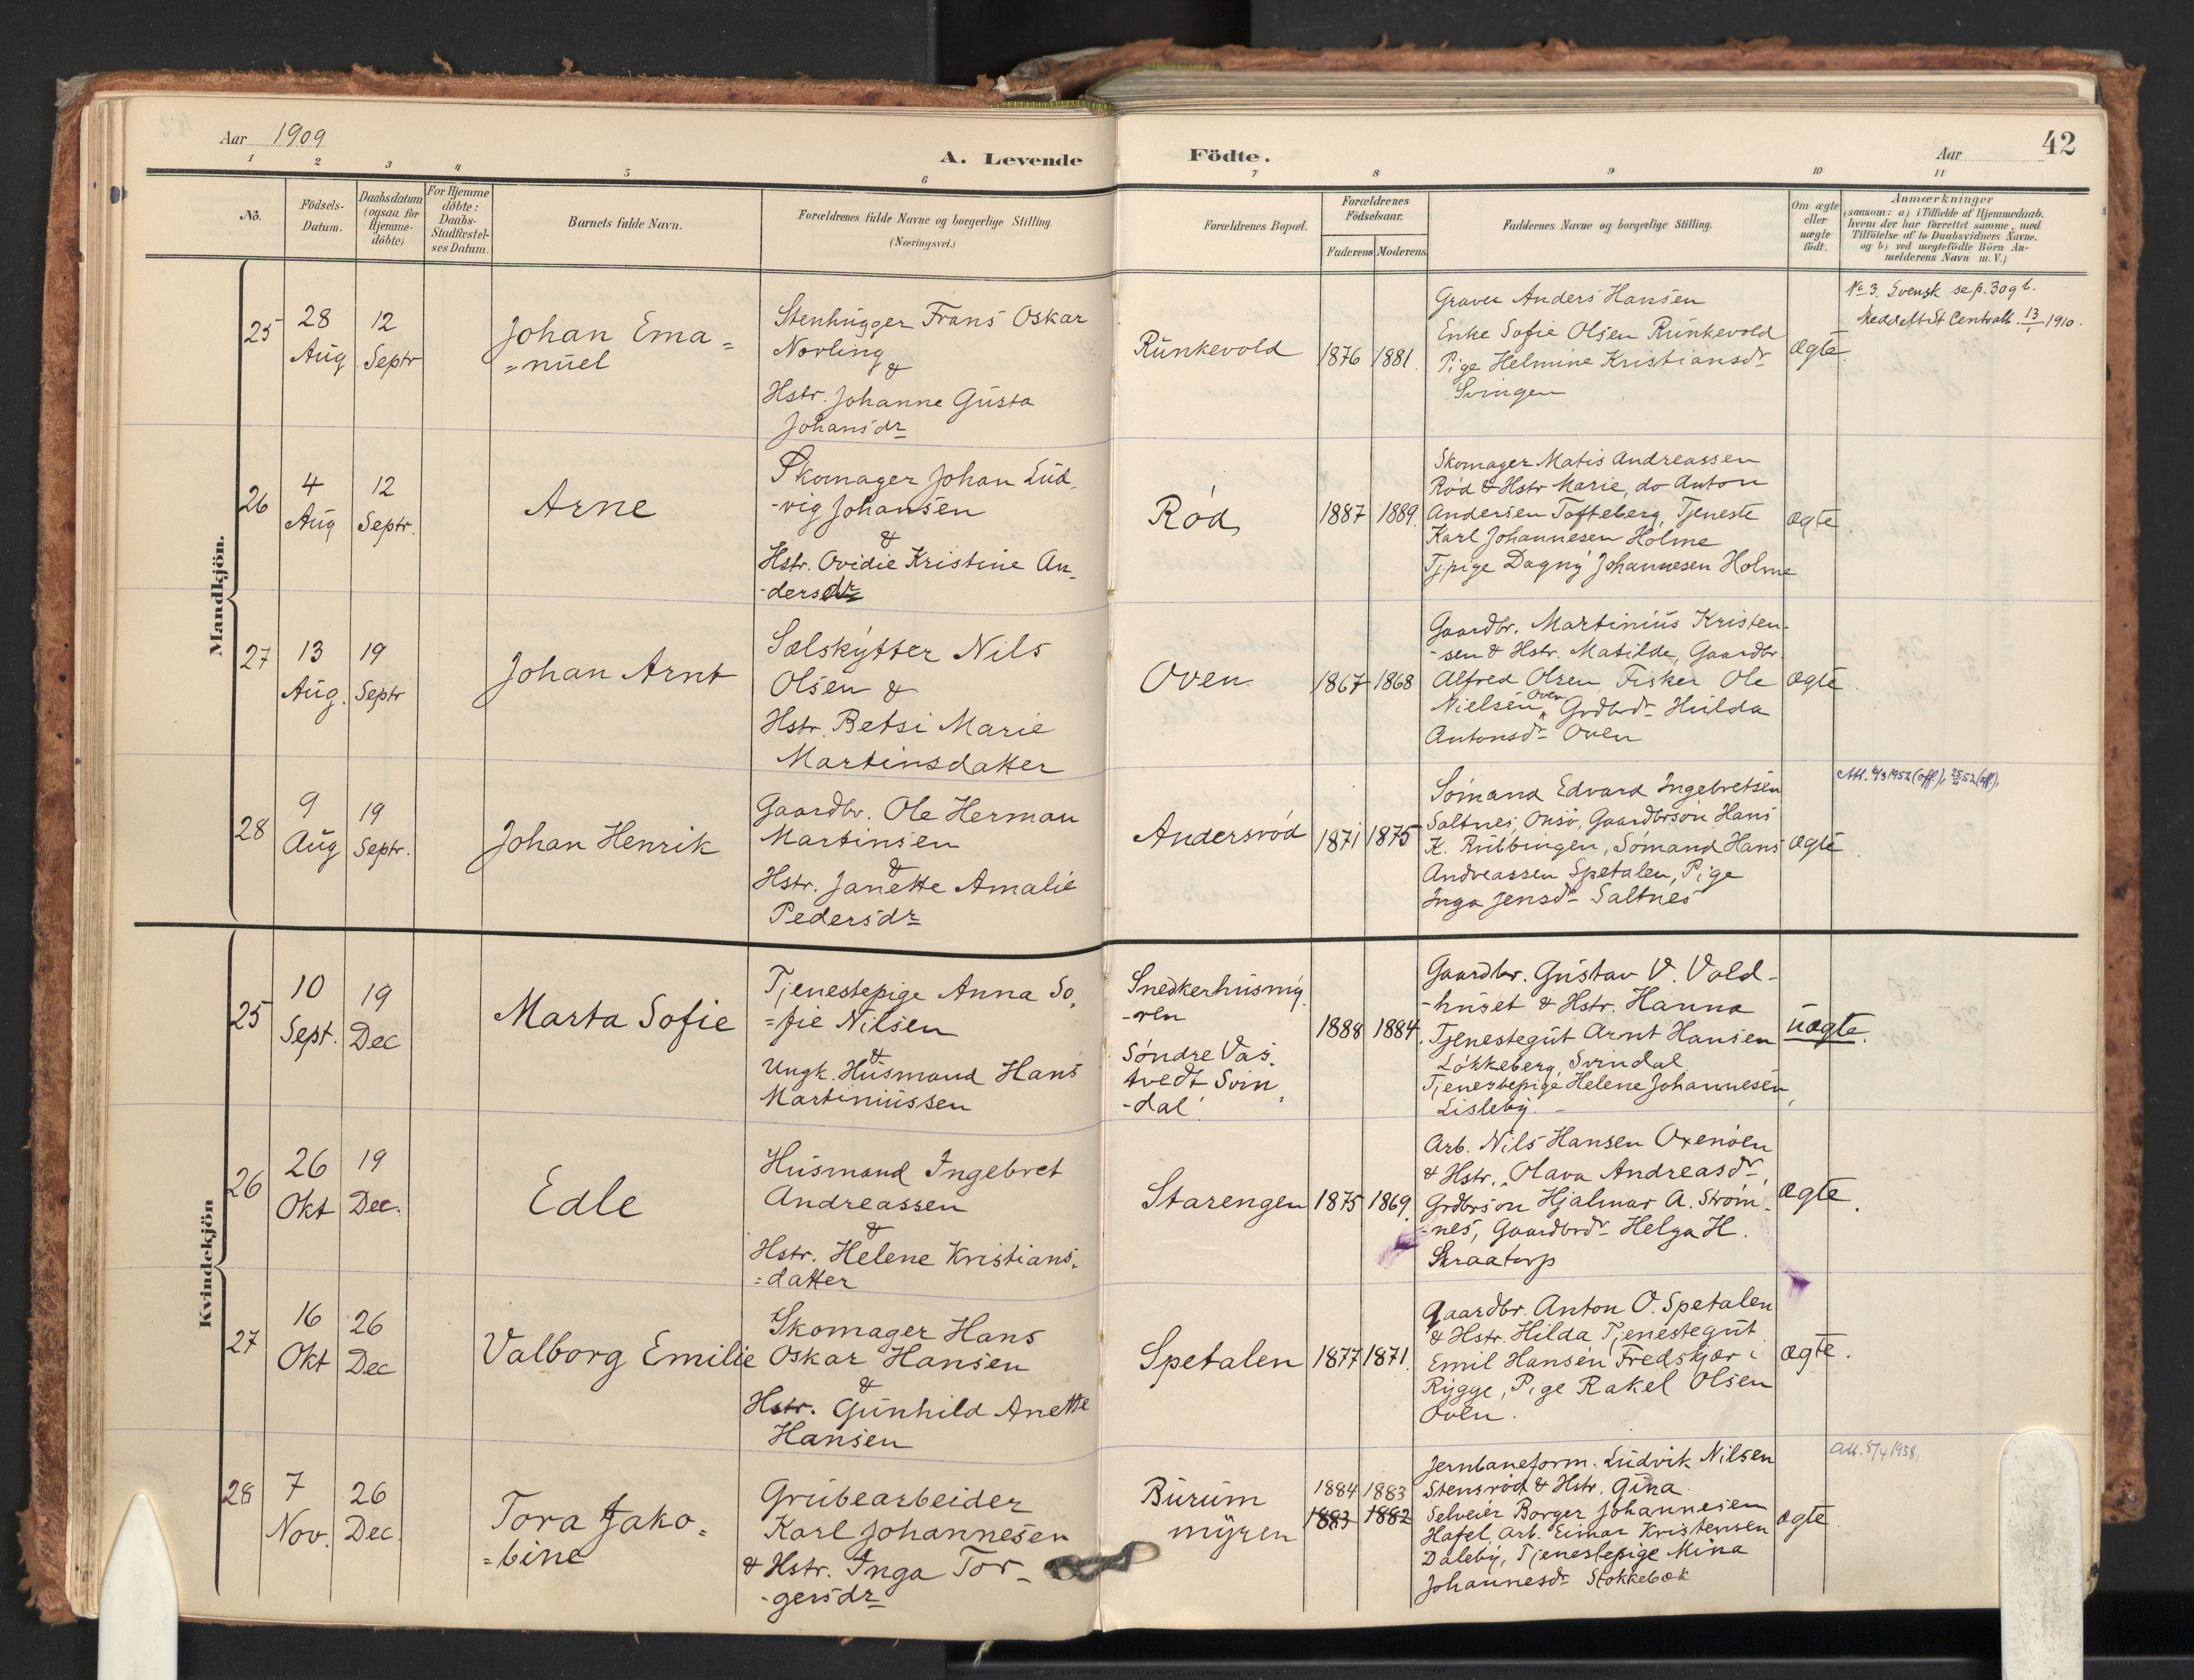 Aar 1909
A. Levende Födte.
Aar 42
1 2 3 4 5 6 7 8 9 10 11
No.
Födsels-
Datum.
Daabsdatum
(ogsaa for
Hjemme-
döbte)
For Hjemme
döbte:
Daabs-
Stadfæstel-
ses Datum.
Barnets fulde Navn.
Forældrenes fulde Navne og borgerlige Stilling.
(Næringsvei.)
Forældrenes Bopæl.
Forældrenes
Födselsaar.
Faderens Moderens.
Faddernes Navne og borgerlige Stilling.
Om ægte
eller
uægte
födt.
Anmærkninger
(saasom: a) i Tilfælde af Hjemmedaab,
hvem der har forrettet samme, med
Tilföielse af to Daabsvidners Navne.
og b) ved uegtefödte Börn An-
melderens Navn m. V.)
Mandkjön.
25
28
Aug
12
Septr
Johan Ema=
=nuel
Stenhugger Frans Oskar
Norling
&
Hstr. Johanne Gusta
Johansdr
Runkevold
1876 1881.
Graver Anders Hansen
Enke Sofie Olsen Runkevold
Pige Helmine Kristiansdr
Svingen
Ægte.
No 3. Svensk se p. 309 b.
Meddelt St Centralb. 13/1 1910.
26
4
Aug
12
Septr.
Arne
Skomager Johan Lud-
-vig Johansen
&
Hstr. Ovidie Kristine An-
-dersdr
Rød
1887 1889.
Skomager Matis Andreassen
Rød & Hstr Marie, do Anton
Andersen Tofteberg, Tjeneste
Karl Johannesen Holme
Tjpige Dagny Johannesen Holme
ægte.
27
13
Aug.
19
Septr
Johan Arnt
Sælskytter Nils
Olsen &
Hstr. Betsi Marie
Martinsdatter
Oven
1867 1868
Gaardbr. Martinius Kristen-
-sen & Hstr. Matilde, Gaardbr.
Alfred Olsen, Fisker Ole
Nielsen Oven, Grdbrdr Hulda
Antonsdr Oven
ægte.
28
9
Aug
19
Septr.
Johan Henrik
Gaardbr. Ole Herman
Martinsen
&
Hstr. Janette Amalie
Pedersdr
Andersrød
1871 1875
Sømand Edvard Ingebretsen
Saltnes, Onsø, Gaardbrsøn Hans
K. Rubbingen, Sømand Hans
Andreassen Spetalen, Pige
Inga Jensdr Saltnes
ægte.
Kvindekjön
25
10
Sept.
19
Dec
Marta Sofie
Tjenestepige Anna So,
=fie Nilsen
&
Ungk. Husmand Hans
Martiniussen
Snedkerhusmy
-ren
Søndre Vas.
tvedt Svin,
-dal.
1888 1884.
Gaardbr. Gustav V. Vold-
-huset & Hstr. Hanna
Tjenestegut Arnt Hansen
Løkkeberg, Svindal
Tjenestepige Helene Johannesen,
Lisleby. -
uægte.
26
26
Okt
19
Dec.
Edle
Husmand Ingebret
Andreassen
&
Hstr. Helene Kristians-
=datter
Starengen
1875 1869.
Arb. Nils Hansen Oxenøen
& Hstr. Olava Andreasdr,
Grdbrsøn Hjalmar A. Strøm-
-nes, Gaardbrdr Helga H.
Skraatorp
ægte.
27
16
Okt
26
Dec
Valborg Emilie
Skomager Hans
Oskar Hansen
&
Hstr. Gunhild Anette
Hansen
Spetalen
1877 1871.
Gaardbr. Anton O. Spetalen
& Hstr. Hilda, Tjenestegut
Emil Hansen Fredskjær i
Rygge, Pige Rakel Olsen
Oven.
ægte.
28
7
Nov.
26
Dec.
Tora Jako=
=bine
Grubearbeider
Karl Johannesen
& Hstr. Inga Tor-
-gersdr
Burum
myren
1884 1883
1883 1882
Jernbaneform. Ludvik Nilsen
Stensrød & Hstr. Gina
Selveier Borger Johannesen
Hafel, Arb. Einar Kristensen
Daleby, Tjenestepige Mina
Johannesdr Stokkebæk
ægte.
Att. 8/4 1938.